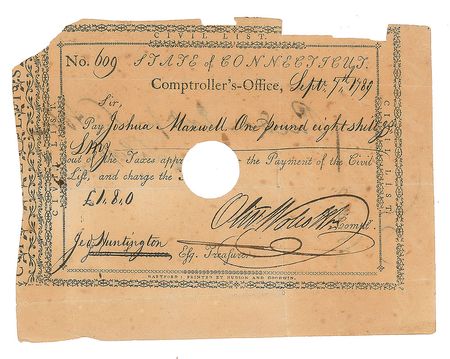 CIVIL LIST
No. 609 STATE of CONNECTICUT,
Comptroller's-Office, Septr. 7th, 1789
Sir,
Pay Joshua Maxwell One pound eight shillgs
out of the Taxes appr the Payment of the Civil
List, and charge the
£1.8.0
Olivr Wolcott Jr. Compt.
Jed Huntington Esq. Treasurer
HARTFORD: PRINTED BY HUDSON AND GOODWIN.
CIVIL LIST
CIVIL LIST